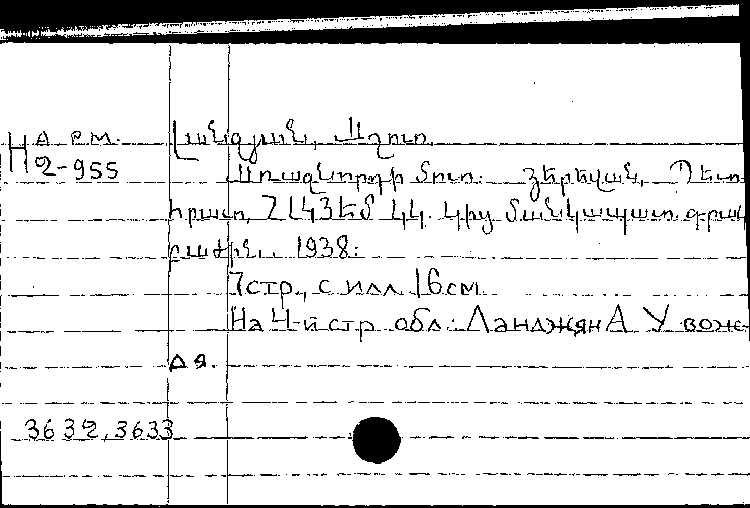 На рм.
2-955
Լանջյան, Աշոտ.
Առաջնորդի մոտ. Երեվան, Պետ
հրատ, ՀԼԿՅԵՄ ԿԿ. կից մանկապատ. գրակ
բաժին, 1938:
7 стр., с илл. 16 см.
На 4-й стр. обл.: Ланджян А. У вожд
дя.
3632, 3633